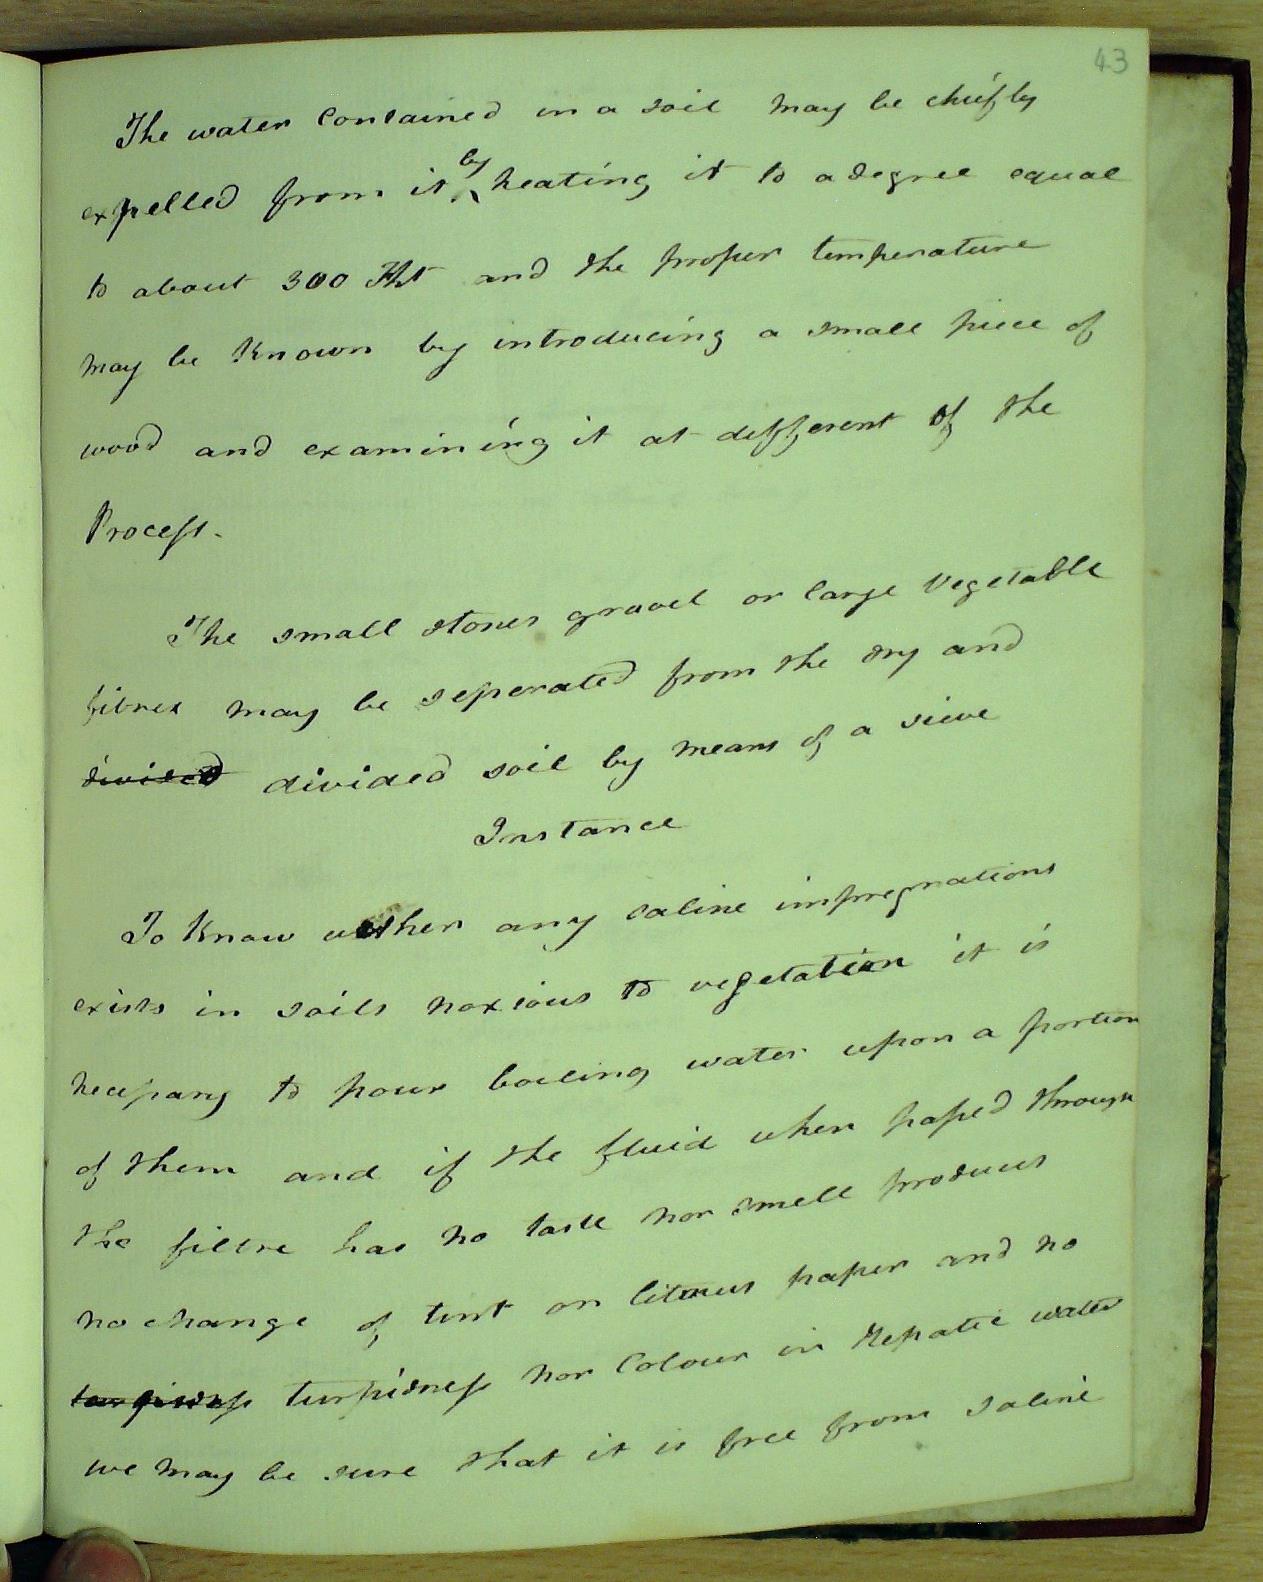 43
The water contained in a soil may be chiefly
expelled from it by heating it to a degree equal
to about 300 Fht and the proper temperature
may be known by introducing a small piece of
wood and examining it at different of the
Process.
The small stones gravel or large vegetable
fibres may be seperated from the dry and
divided divided soil by means of a sieve
Instance
To Know wether any saline impregnations
exists in soils noxious to vegetation it is
necessary to pour boiling water upon a portion
of them and if the fluid when passed through
the filtre has no taste nor smell produces
no change of tint on litmus paper and no
turpidness turpidness nor Colour in Hepatic water
we may be sure that it is free from saline